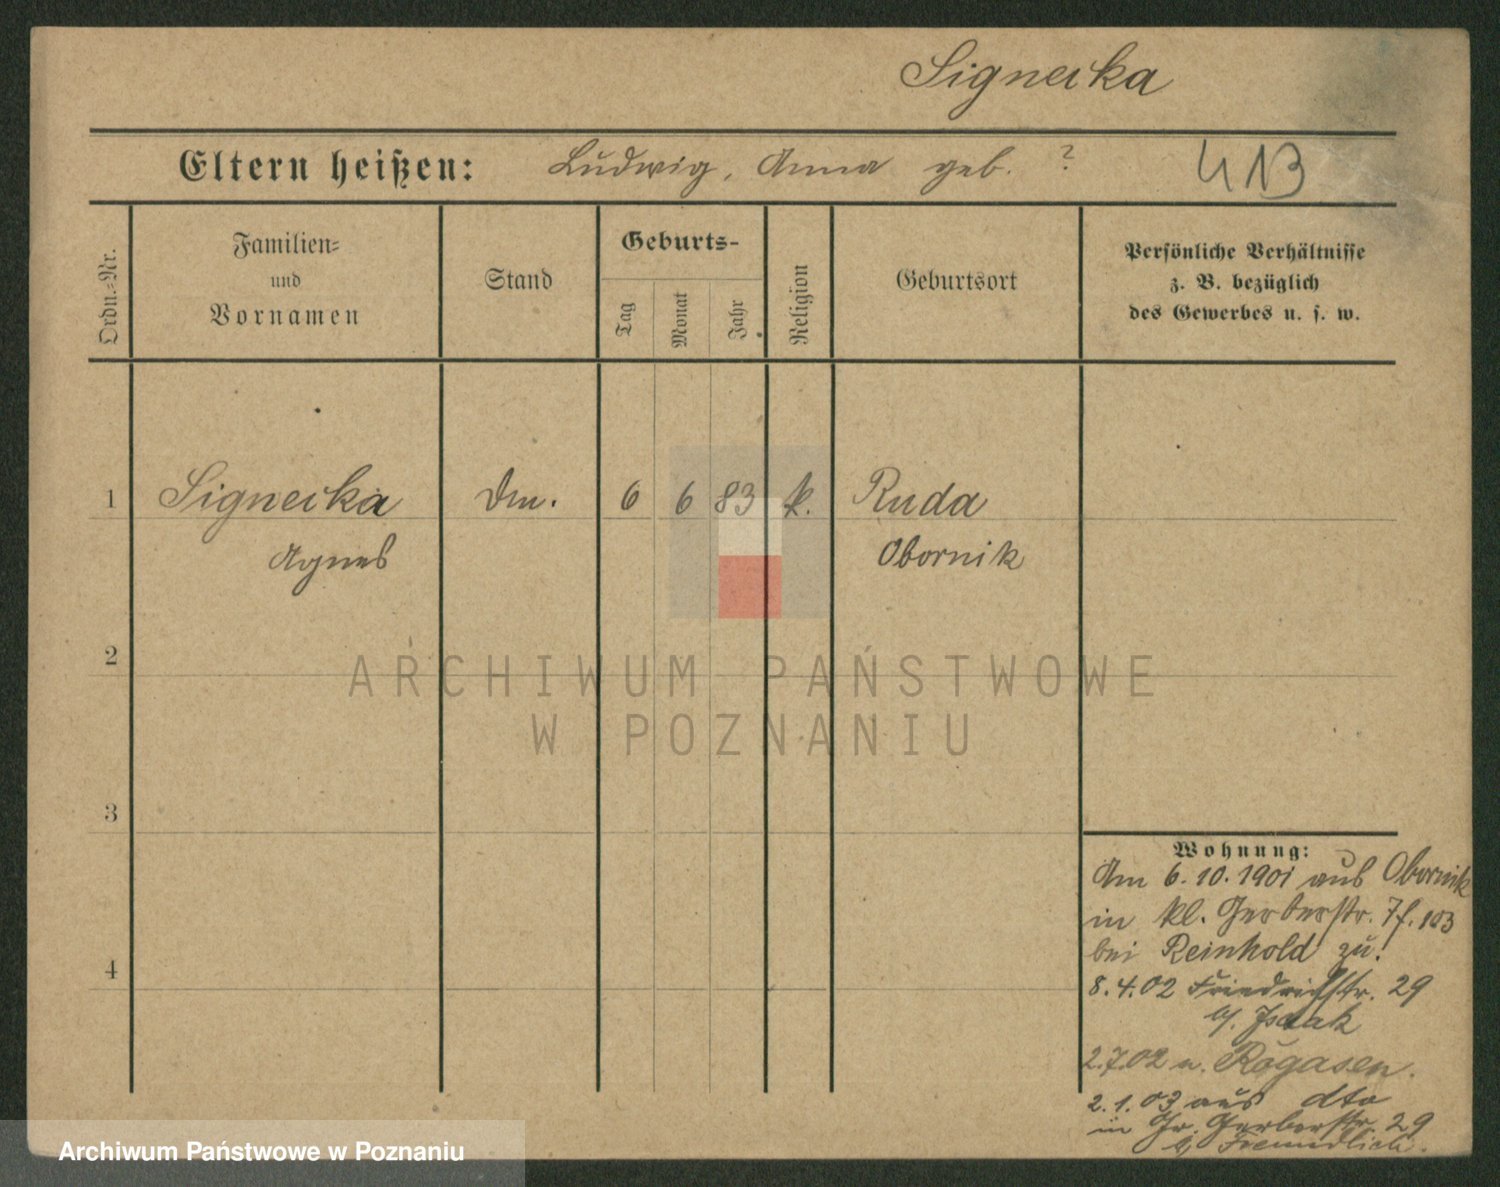 Signecka
Eltern heißen: Ludwig, Anna geb. ? 413
Ordn.-Nr.
Familien-
und
Vornamen
Stand
Geburts-
Tag
Monat
Jahr
Religion
Geburtsort
Persönliche Verhältnisse
z. B. bezüglich
des Gewerbes u. s. w.
1 Signecka Dm. 6 6 83 k. Ruda
Agnes Obornik
2
ARCHIWUM PAŃSTWOWE
W POZNANIU
3
Wohnung:
Am 6.10.1901 aus Obornik
in kl. Gerberstr. 7f. 103
bei Reinhold zu.
4
8.4.02 Friedrichstr. 29
b/. Isaak
2.7.02 n. Rogasen.
2.1.03 aus dto
in Gr. Gerberstr. 29
b/ Freundlich.
Archiwum Państwowe w Poznaniu